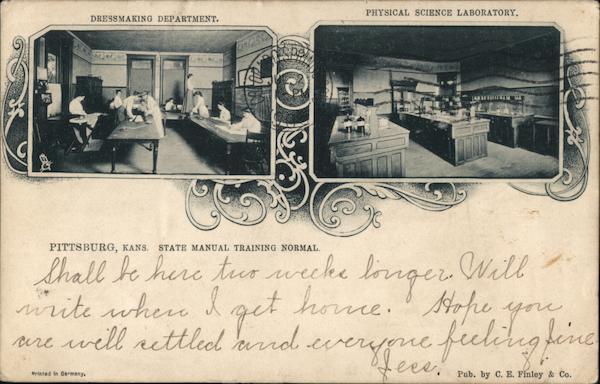 DRESSMAKING DEPARTMENT.
PHYSICAL SCIENCE LABORATORY.
PITTSBURG, KANS. STATE MANUAL TRAINING NORMAL.
Shall be here two weeks longer. Will
write when I get home. Hope you
are well settled and everyone feeling fine
Jess.
Printed in Germany.
Pub. by C. E. Finley & Co.